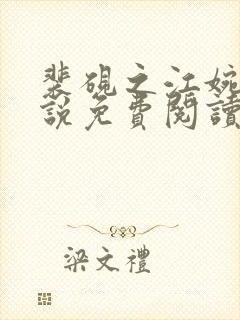 裴硯之江婉
說免費閱讀
梁文禮